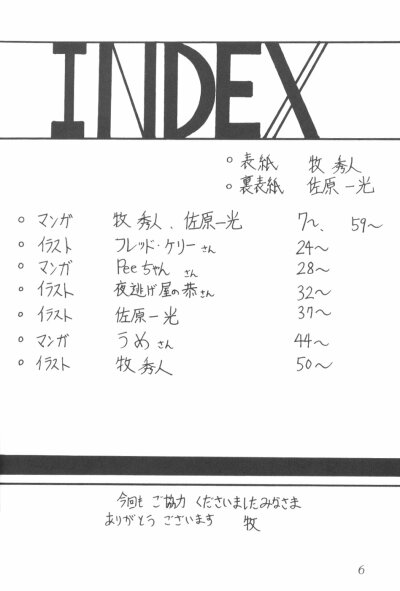 INDEX
○ 表紙 牧 秀人
○ 裏表紙 佐原 一光
○ マンガ 牧 秀人、佐原 一光 7〜、59〜
○ イラスト フレッド・ケリーさん 24〜
○ マンガ Peeちゃん さん 28〜
○ イラスト 夜逃げ屋の恭さん 32〜
○ イラスト 佐原 一光 37〜
○ マンガ うめさん 44〜
○ イラスト 牧 秀人 50〜
今回も ご協力 くださいましたみなさま
ありがとう ございます 牧
6